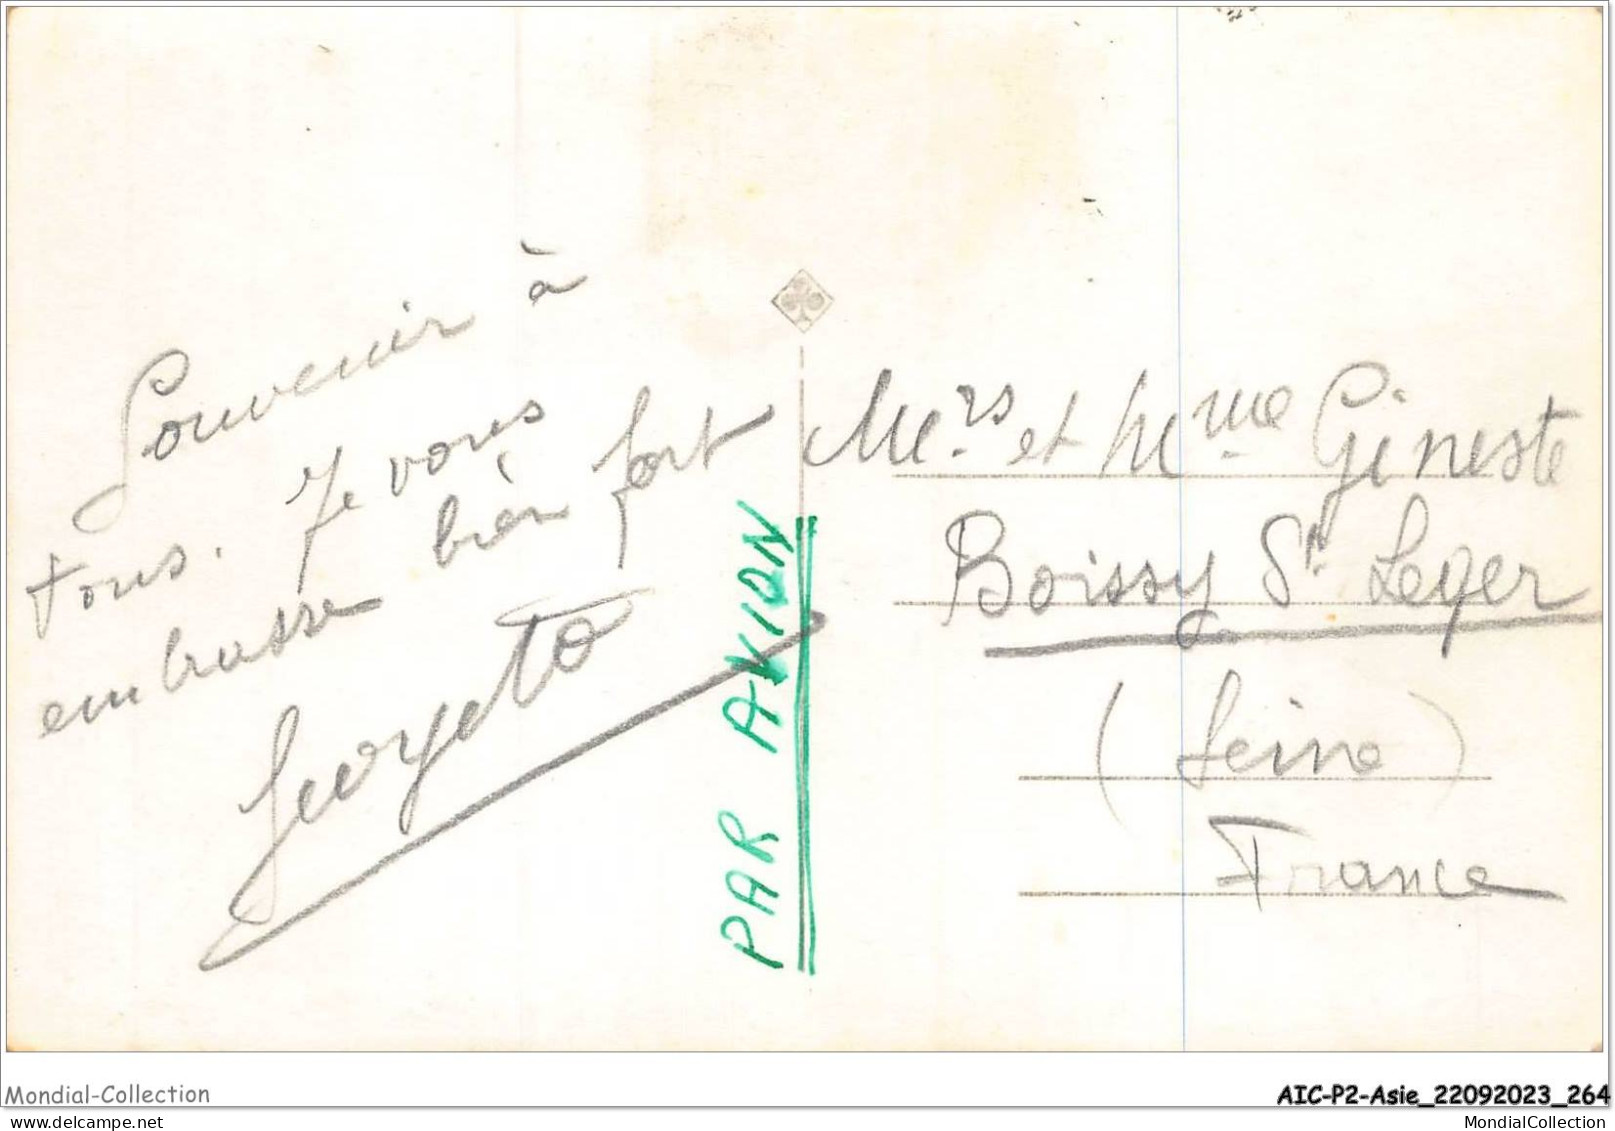 Souvenir à
tous. Je vous
embrasse bien fort
PAR AVION
Mrs. et Mme. Gineste
Boissy St. Leger
(Seine)
France
Mondial-Collection
AIC-P2-Asie_22092023_264
MondialCollection